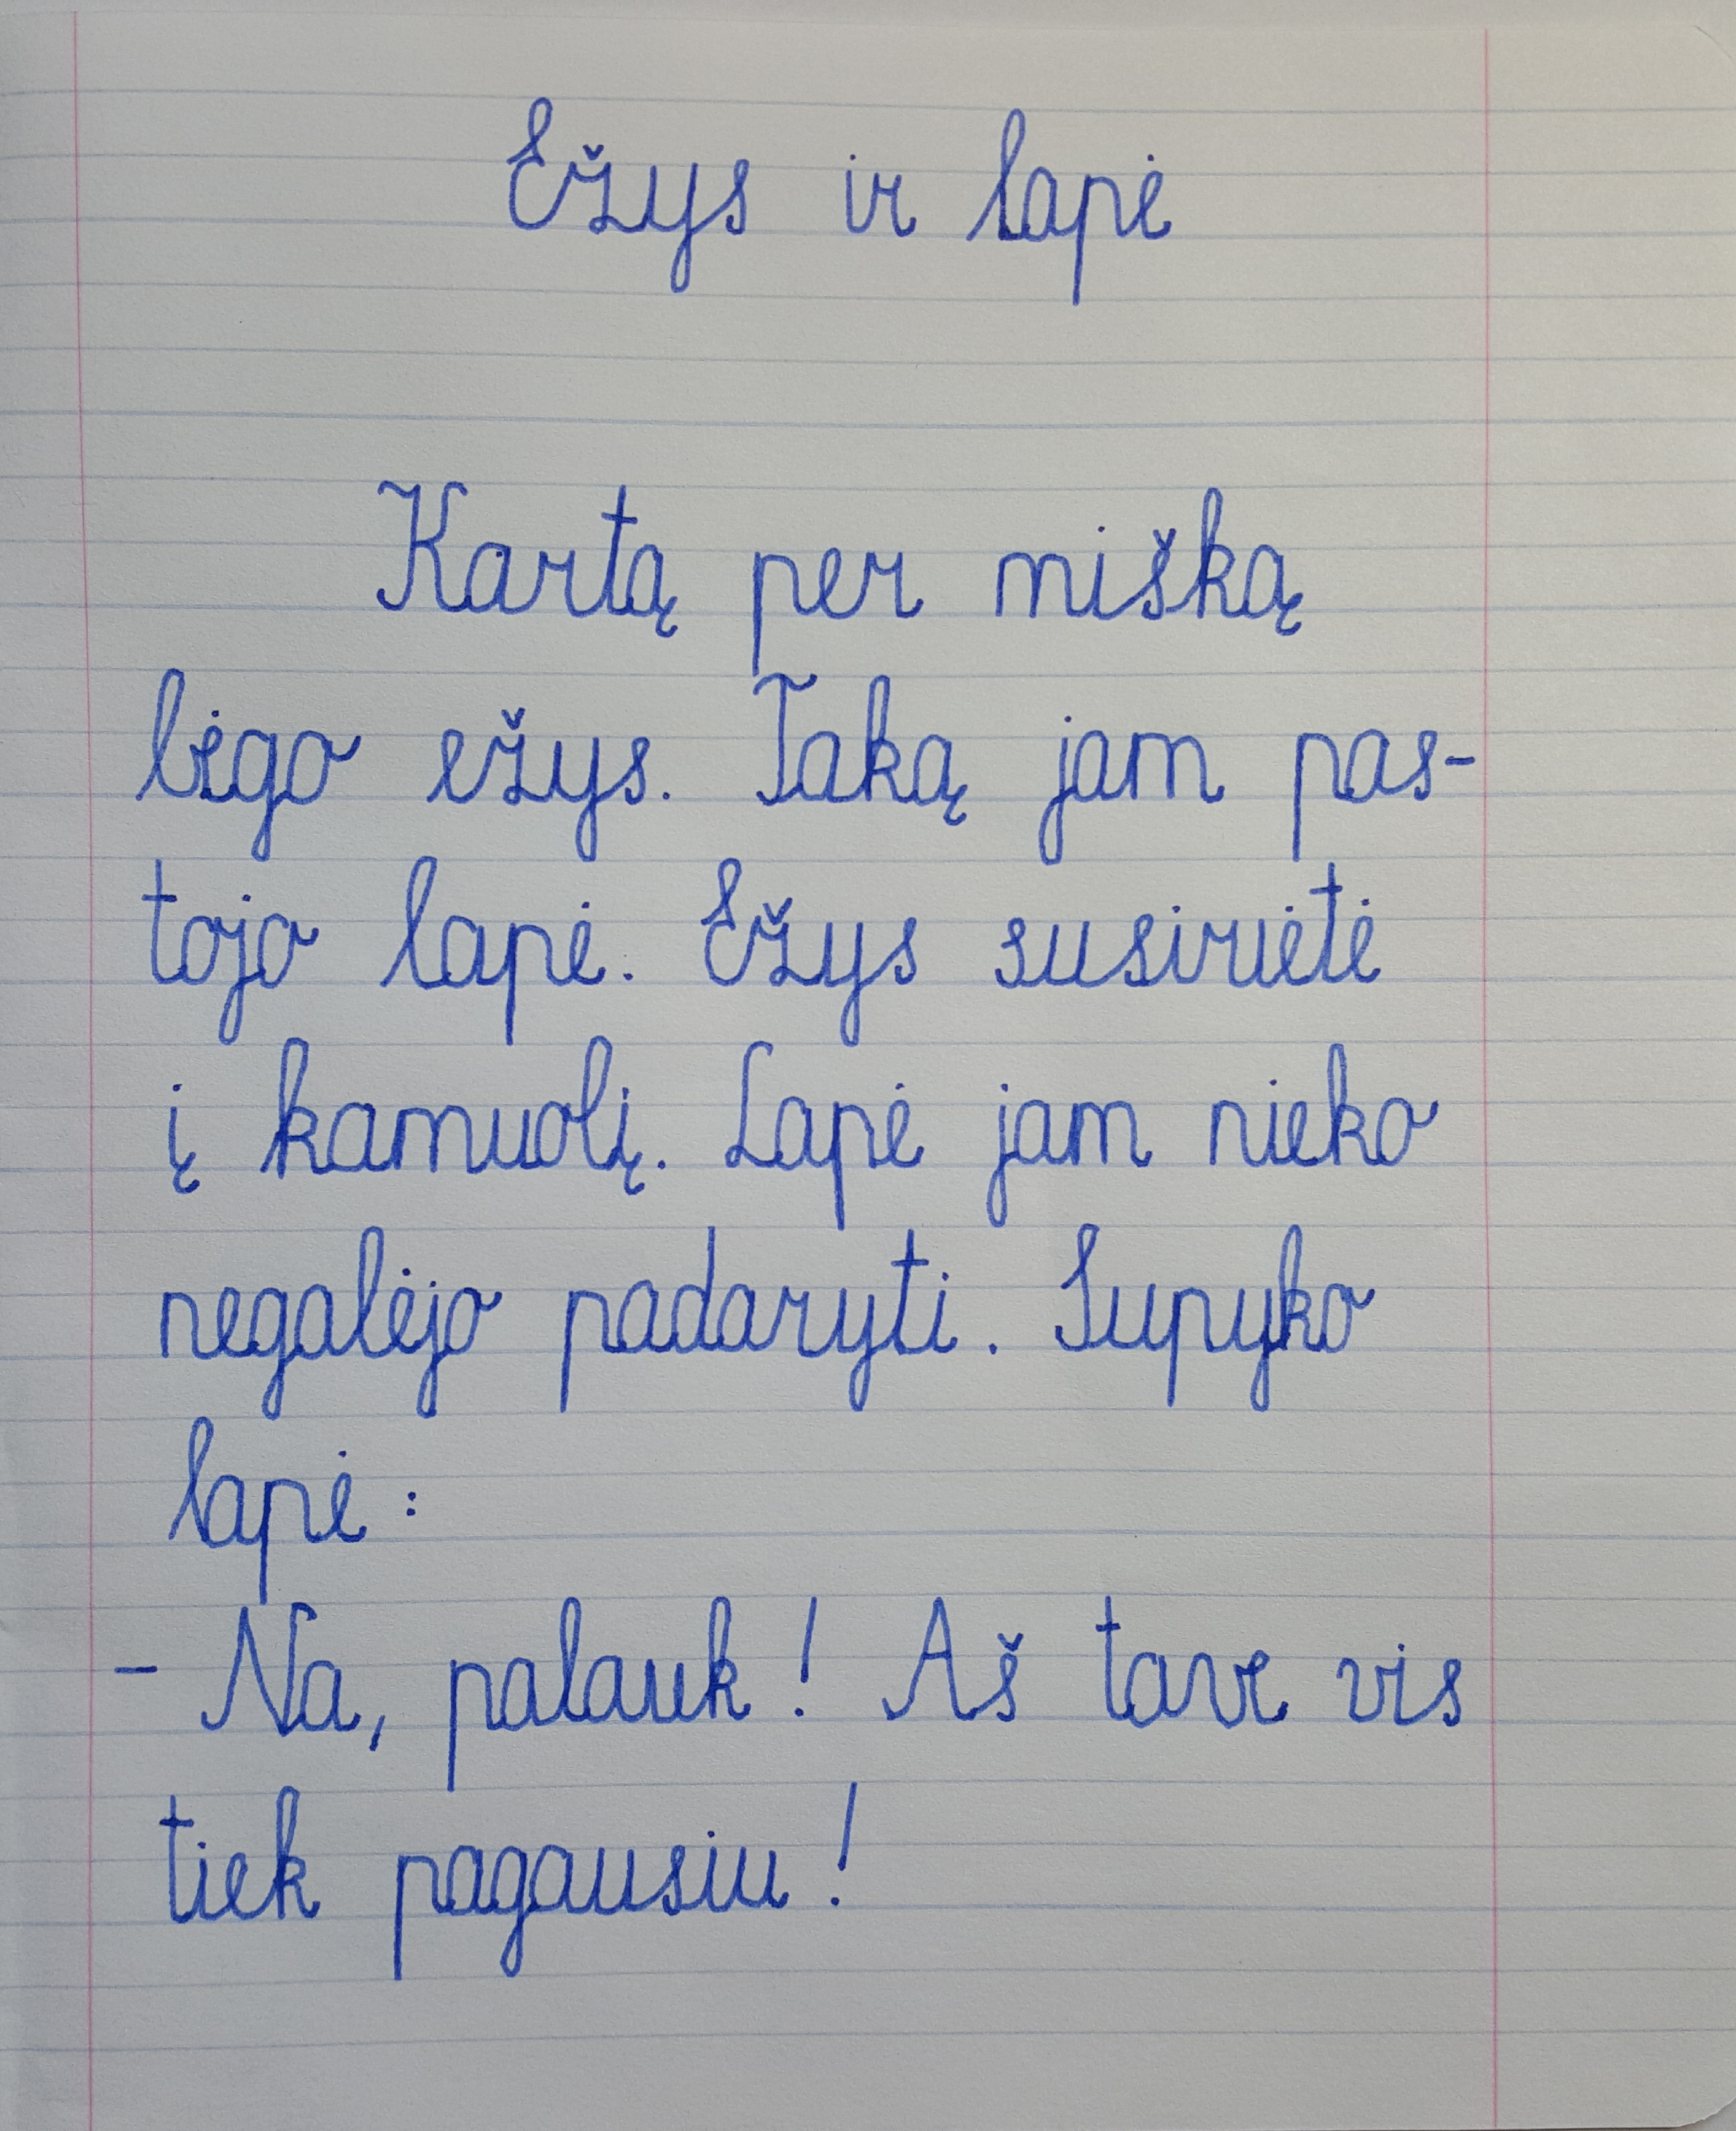 Ežys ir lapė
Kartą per mišką
bėgo ežys. Taką jam pas-
tojo lapė. Ežys susirietė
į kamuolį. Lapė jam nieko
negalėjo padaryti. Supyko
lapė:
- Na, palauk! Aš tave vis
tiek pagausiu!